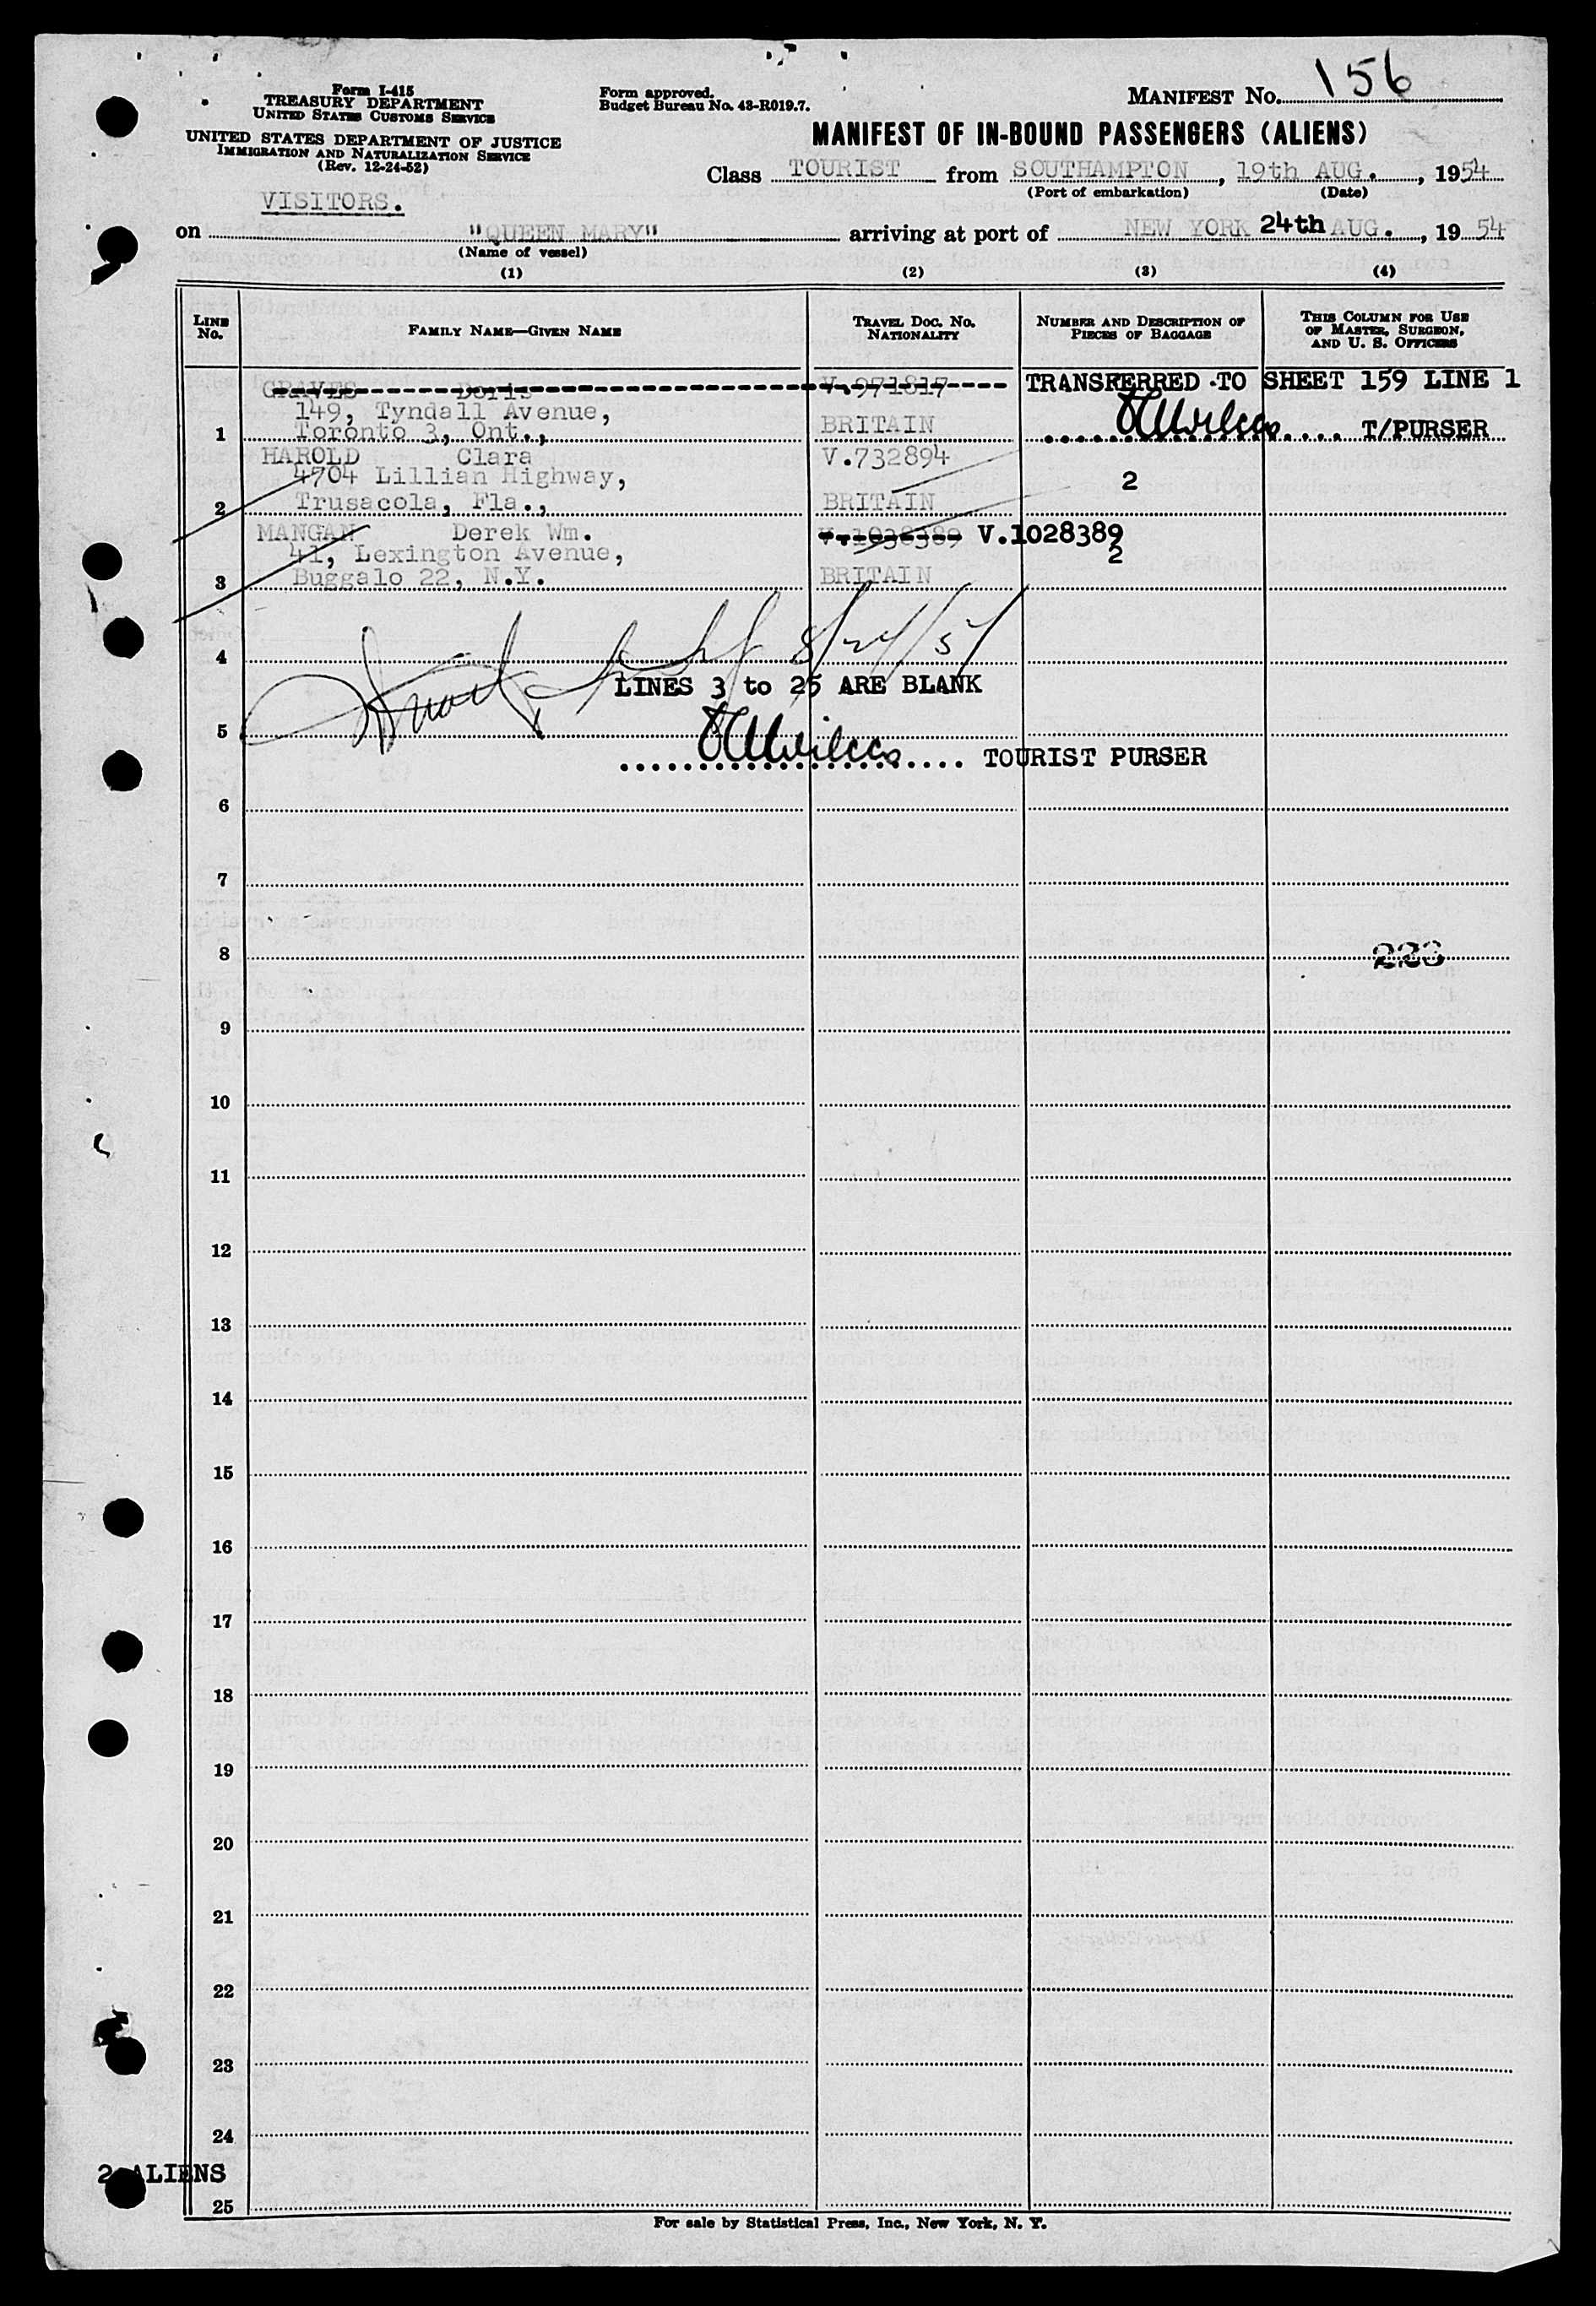 Form I-415
TREASURY DEPARTMENT
UNITED STATES CUSTOMS SERVICE
UNITED STATES DEPARTMENT OF JUSTICE
IMMIGRATION AND NATURALIZATION SERVICE
(Rev. 12-24-52)
Form approved.
Budget Bureau No. 43-R019.7.
MANIFEST No. 156
MANIFEST OF IN-BOUND PASSENGERS (ALIENS)
Class TOURIST from SOUTHAMPTON, 19th AUG., 1954
(Port of embarkation) (Date)
VISITORS.
on "QUEEN MARY" arriving at port of NEW YORK 24th AUG., 19 54
(Name of vessel)
(1) (2) (3) (4)
LINE No. FAMILY NAME—GIVEN NAME TRAVEL DOC. No. NATIONALITY NUMBER AND DESCRIPTION OF PIECES OF BAGGAGE THIS COLUMN FOR USE OF MASTER, SURGEON, AND U. S. OFFICERS
GRAVES Doris V.971817 TRANSFERRED TO SHEET 159 LINE 1
149, Tyndall Avenue,
1 Toronto 3, Ont., BRITAIN T/PURSER
HAROLD Clara V.732894
4704 Lillian Highway, 2
2 Trusacola, Fla., BRITAIN
MANGAN Derek Wm. V.1038389 V.1028389
41, Lexington Avenue, 2
3 Buggalo 22, N.Y. BRITAIN
4 8/24/54
LINES 3 to 25 ARE BLANK
5
TOURIST PURSER
6
7
8 223
9
10
11
12
13
14
15
16
17
18
19
20
21
22
23
24
2 ALIENS
25
For sale by Statistical Press, Inc., New York, N. Y.